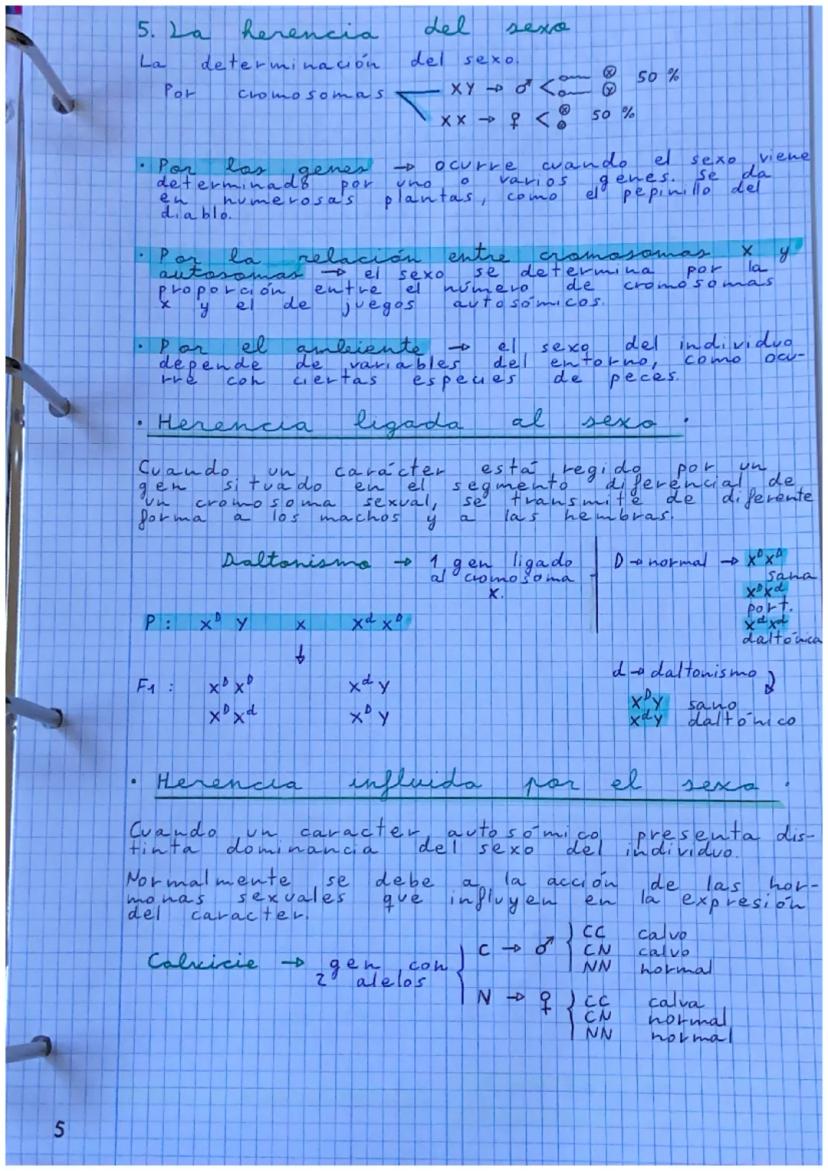 5. La herencia del sexo
La determinación del sexo.
Por cromosomas XY → ♂ < X Y 50 %
XX → ♀ < X X 50 %
· Por los genes → ocurre cuando el sexo viene
determinado por uno o varios genes. Se da
en numerosas plantas, como el pepinillo del
diablo.
· Por la relación entre cromosomas X y
autosomas → el sexo se determina por la
proporción entre el número de cromosomas
X y el de juegos autosómicos.
· Por el ambiente → el sexo del individuo
depende de variables del entorno, como ocu-
rre con ciertas especies de peces.
· Herencia ligada al sexo ·
Cuando un carácter está regido por un
gen situado en el segmento diferencial de
un cromosoma sexual, se transmite de diferente
forma a los machos y a las hembras.
Daltonismo → 1 gen ligado
al cromosoma
X.
D → normal → XᴰXᴰ
sana
XᴰXᵈ
port.
XᵈXᵈ
daltónica
P: Xᴰ Y x Xᵈ Xᴰ
↓
d → daltonismo
F1: XᴰXᴰ XᵈY
XᴰXᵈ XᴰY
XᴰY sano
XᵈY daltónico
· Herencia influida por el sexo ·
Cuando un caracter autosómico presenta dis-
tinta dominancia del sexo del individuo.
Normalmente se debe a la acción de las hor-
monas sexuales que influyen en la expresión
del caracter.
Calvicie → gen con
2 alelos
C → ♂ { CC calvo
CN calvo
NN normal
N → ♀ { CC calva
CN normal
NN normal
5